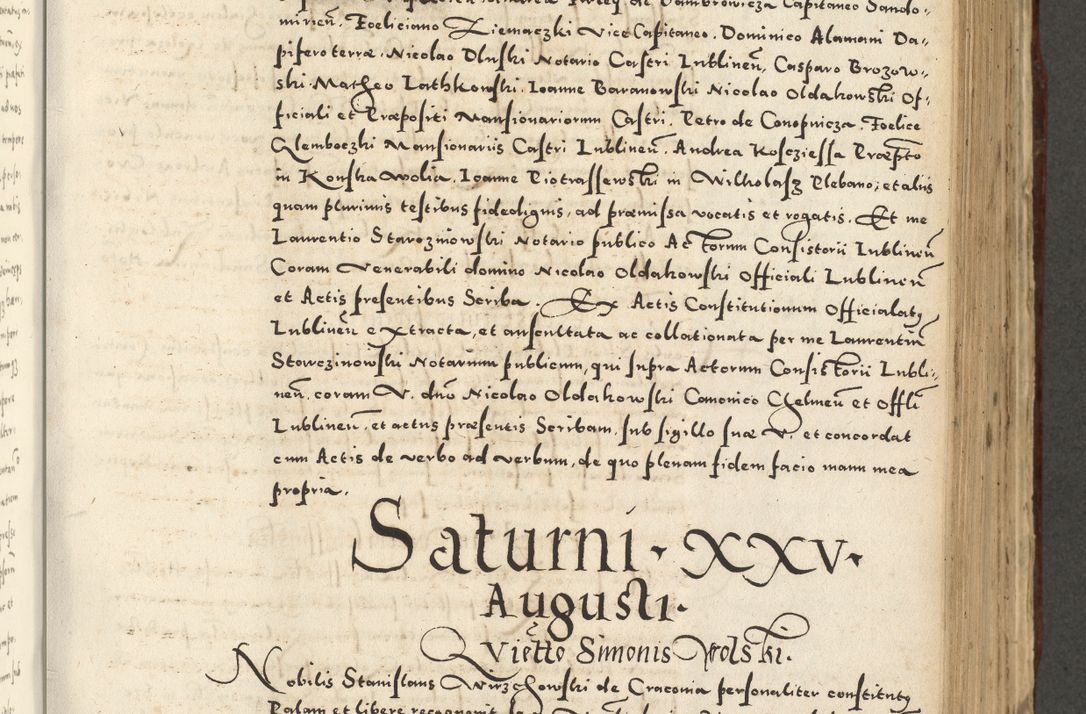 Andrea Firley de Dambrowicza Capitaneo Sando⸗
mirien̄. Foeliciano Ziemaczki Vice Capitaneo. Dominico Alamani Da⸗
pifero terræ. Nicolao Dluski Notario Castri Lublinen̄, Casparo Brozow⸗
ski. Matheo Lathkowski. Ioanne Baranowski Nicolao Oldakowski Of⸗
ficiali et Præpositi Mansionariorum Castri. Petro de Conopnicza. Foelice
Glemboczki Mansionariis Castri Lublinen̄. Andrea Koscziessa Præpto
in Konska wolia. Ioanne Piotrassewski in Wilkolasz Plebano; et aliis
quam plurimis testibus fidedignis, ad præmissa vocatis et rogatis. Et me
Laurentio Starozinowski Notario publico Actorum Consistorii Lublinen̄
Coram Venerabili domino Nicolao Oldakowski Officiali Lublinen̄
et Actis presentibus Scriba. Ex Actis Constitutionum Officialatꝯ
Lublinen̄ extracta, et auscultata ac collationata per me Laurentiū
Starczinowski Notarium publicum, qui supra Actorum Consistorii Lubli⸗
nen̄. coram V. dnō Nicolao Oldakowski Canonico Chelmen̄ et Offli
Lublinen̄, et actus præsentis Scribam, sub sigillo suæ V. et concordat
cum Actis de verbo ad verbum, de quo plenam fidem facio manu mea
propria.
Saturni · XXV·
Augusti·
Qviętto Simonis Wolski.
Nobilis Stanislaus Wirzchowski de Craconia personaliter constitutꝯ
Palam et libere recognovit